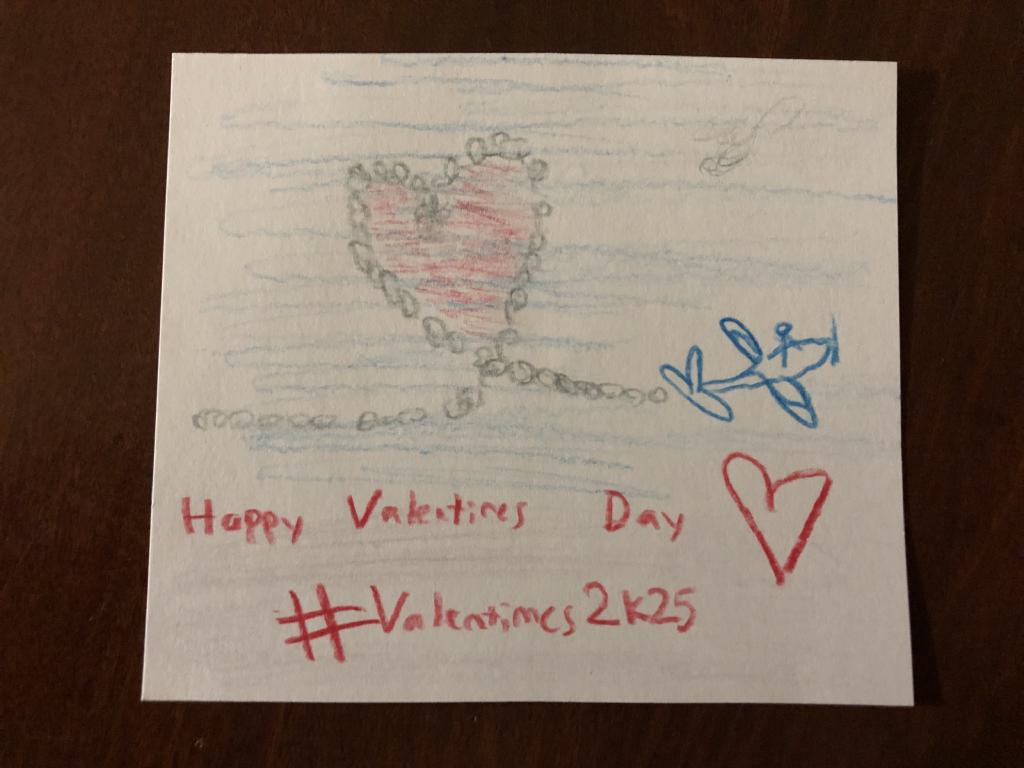 Happy Valentines Day
#Valentines2k25